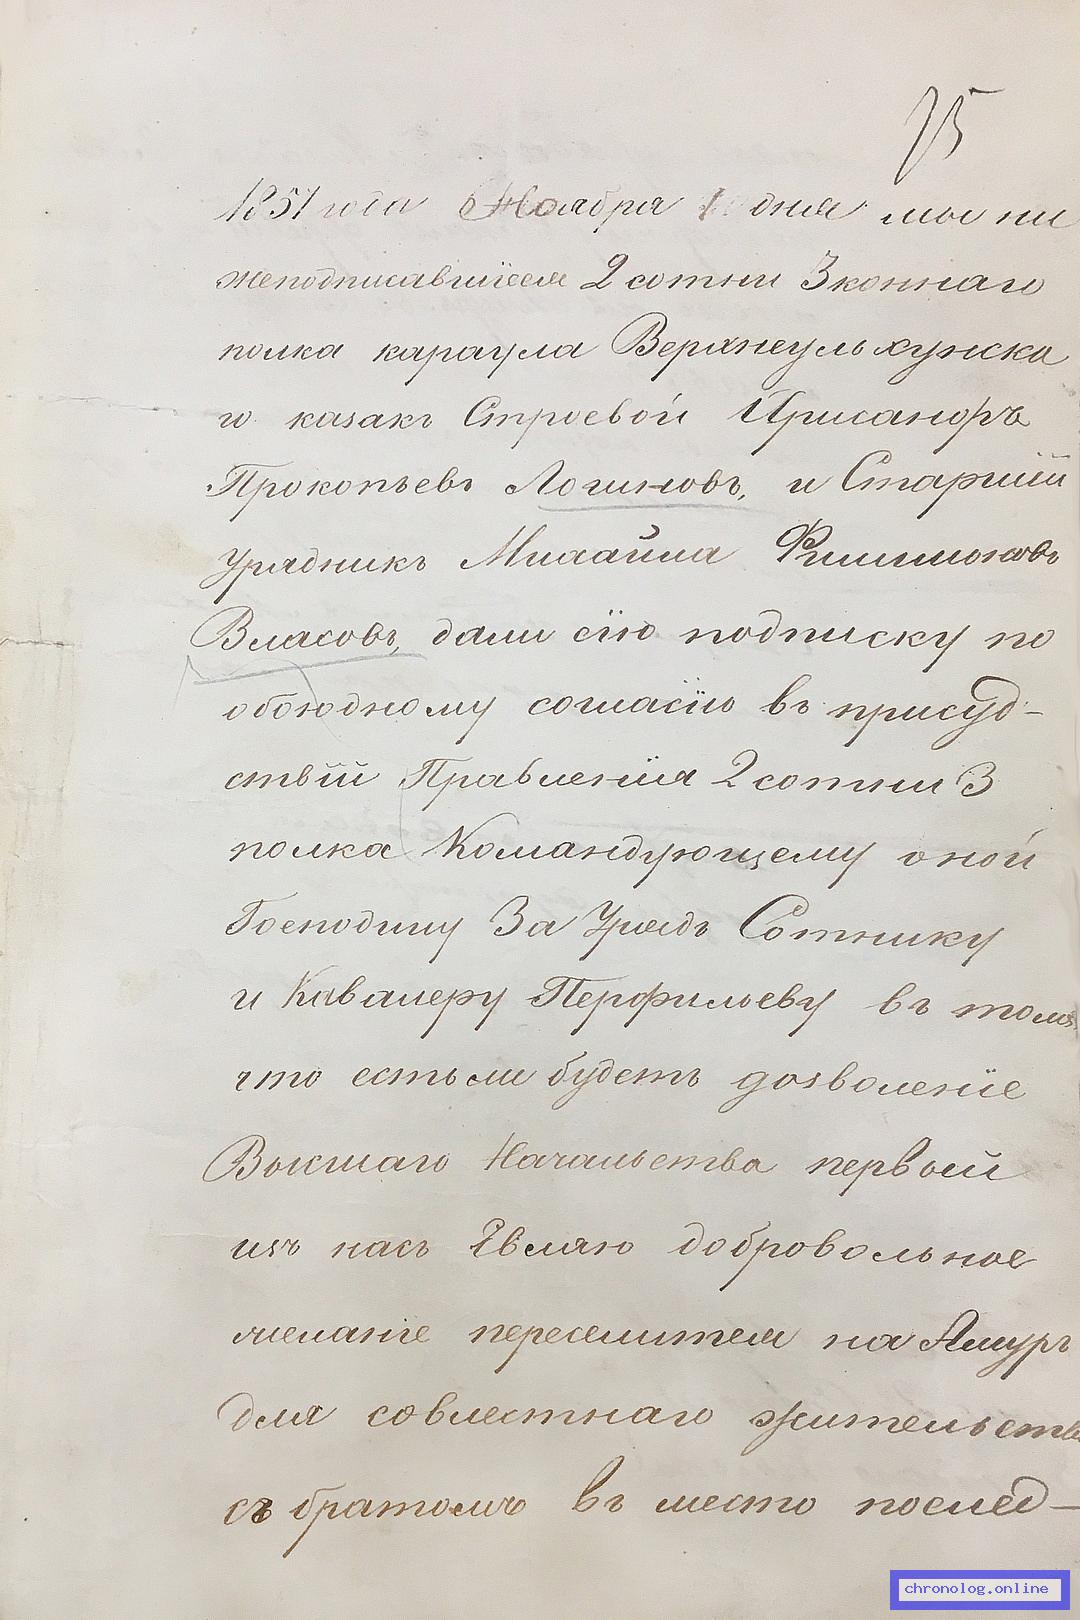 75
1857 года Ноября дня мы ни
жеподписавшїеся 2 сотни 3 коннаго
полка караула Верхнеульхунска
го казакъ Строевой Крисанфъ
Прокопьевъ Логиновъ, и Старшїй
Урядникъ Михайла Филимоновъ
Власовъ, дали сїю подписку по
обоюдному согласїю въ присуд-
ствїй Правленїя 2 сотни 3
полка Командующему оной
Господину За Урядъ Сотнику
и Кавалеру Перфильеву въ томъ
что естьли будетъ дозволенїе
Высшаго Начальства первой
изъ насъ Евляю добровольное
желанїе переселится на Амуръ
для совместнаго жительства
съ братомъ въ место послед-
chronolog.online